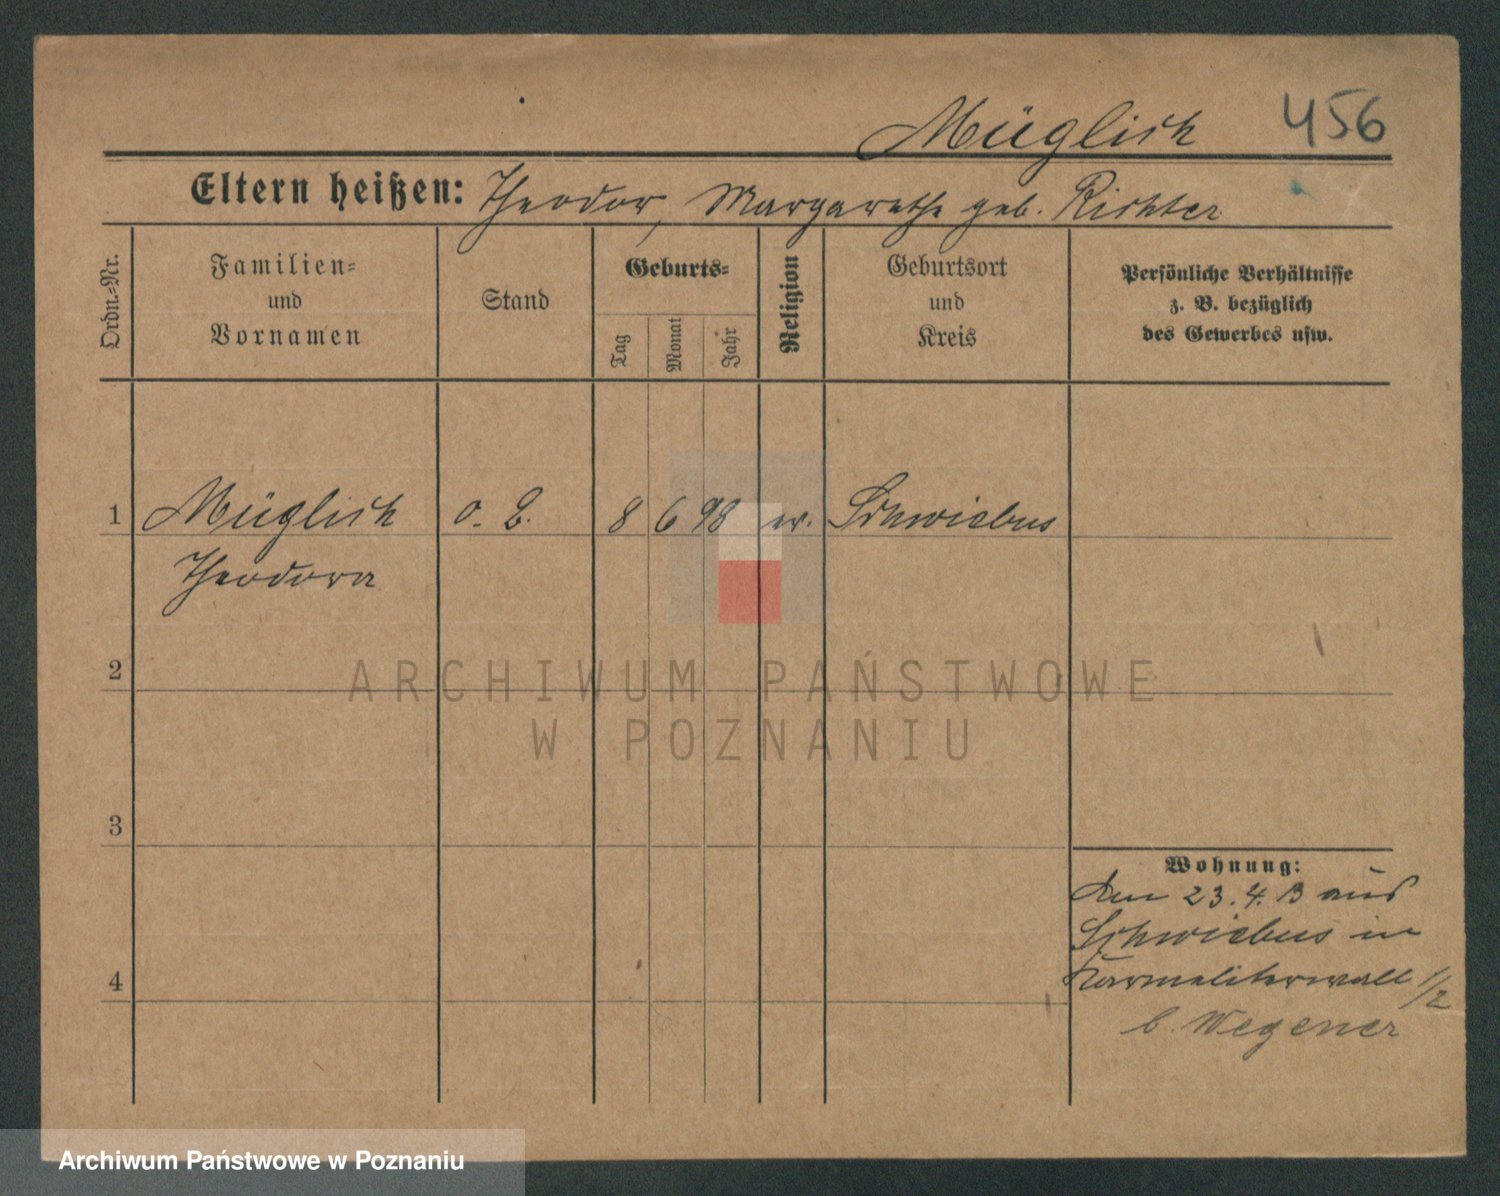 Müglich 456
Eltern heißen: Theodor, Margarethe geb. Richter
Ordn.-Nr.
Familien-
und
Vornamen
Stand
Geburts-
Tag
Monat
Jahr
Religion
Geburtsort
und
Kreis
Persönliche Verhältnisse
z. B. bezüglich
des Gewerbes usw.
1 Müglich o. B. 8 6 98 ev. Schwiebus
Theodora
2
3
4
Wohnung:
den 23.4.13 aus
Schwiebus in
Karmeliterwall 1/2
b. Wegener
ARCHIWUM PAŃSTWOWE
W POZNANIU
Archiwum Państwowe w Poznaniu